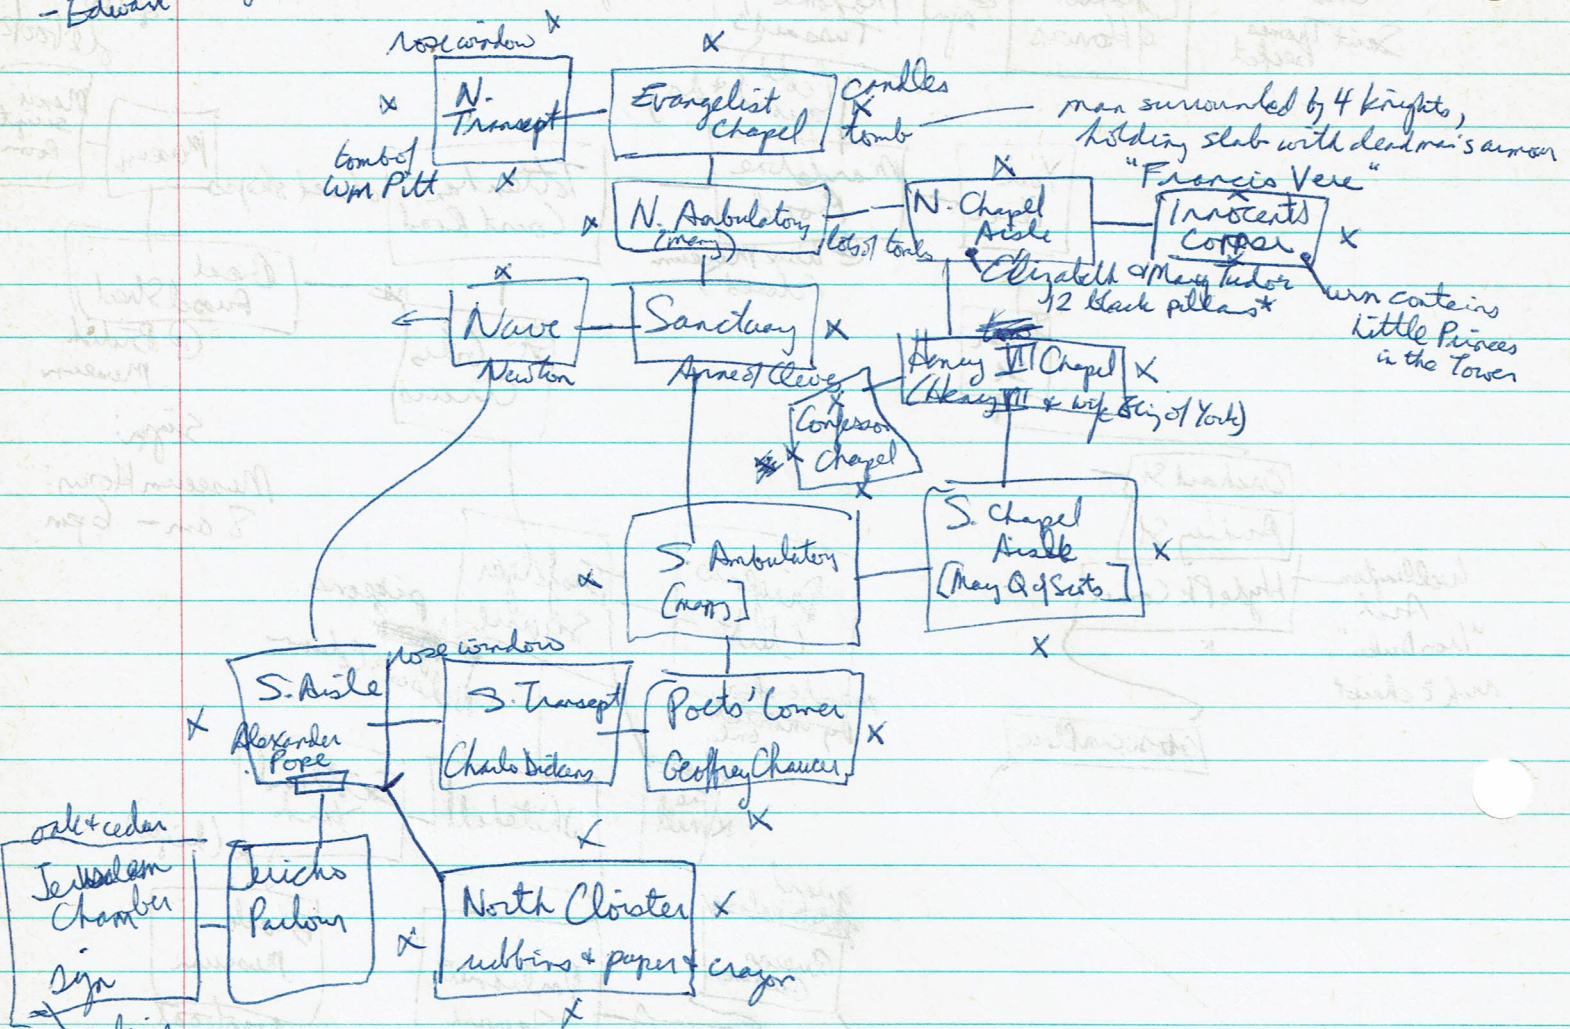 - Edward
rose window
N.
Transept
tomb of
Wm Pitt
Evangelist
Chapel
candles
tomb
man surrounded by 4 knights,
holding slab with dead man's armour
"Francis Vere"
N. Ambulatory
(many)
lots of tombs
N. Chapel
Aisle
Innocents
Corner
Elizabeth & Mary Tudor
12 black pillars*
urn contains
Little Princes
in the Tower
Nave
Newton
Sanctuary
Anne of Cleves
Henry VII Chapel
(Henry VII & wife Eliz of York)
Confessor
Chapel
S. Ambulatory
[many]
S. Chapel
Aisle
[Mary Q of Scots]
S. Aisle
Alexander
Pope
rose window
S. Transept
Charles Dickens
Poets' Corner
Geoffrey Chaucer
oak & cedar
Jerusalem
Chamber
sign
Jericho
Parlour
North Cloister
rubbins & paper & crayon